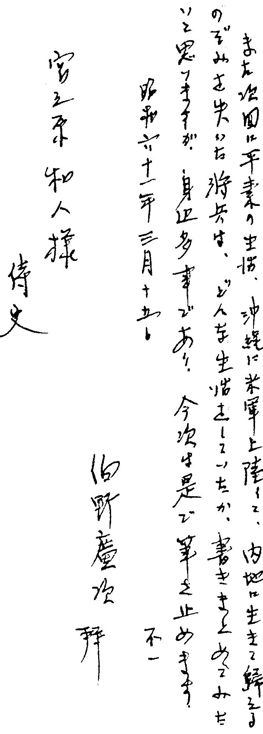 また次回は平素の生活、沖縄に米軍上陸して、内地に生きて帰える
のぞみを失った将兵は、どんな生活をしていたか、書きまとめてみた
いと思いますが、身辺多事であり、今次は是で筆を止めます。
不一
昭和六十一年三月十五日
伯野慶次 拝
宮之原 和人様
侍史